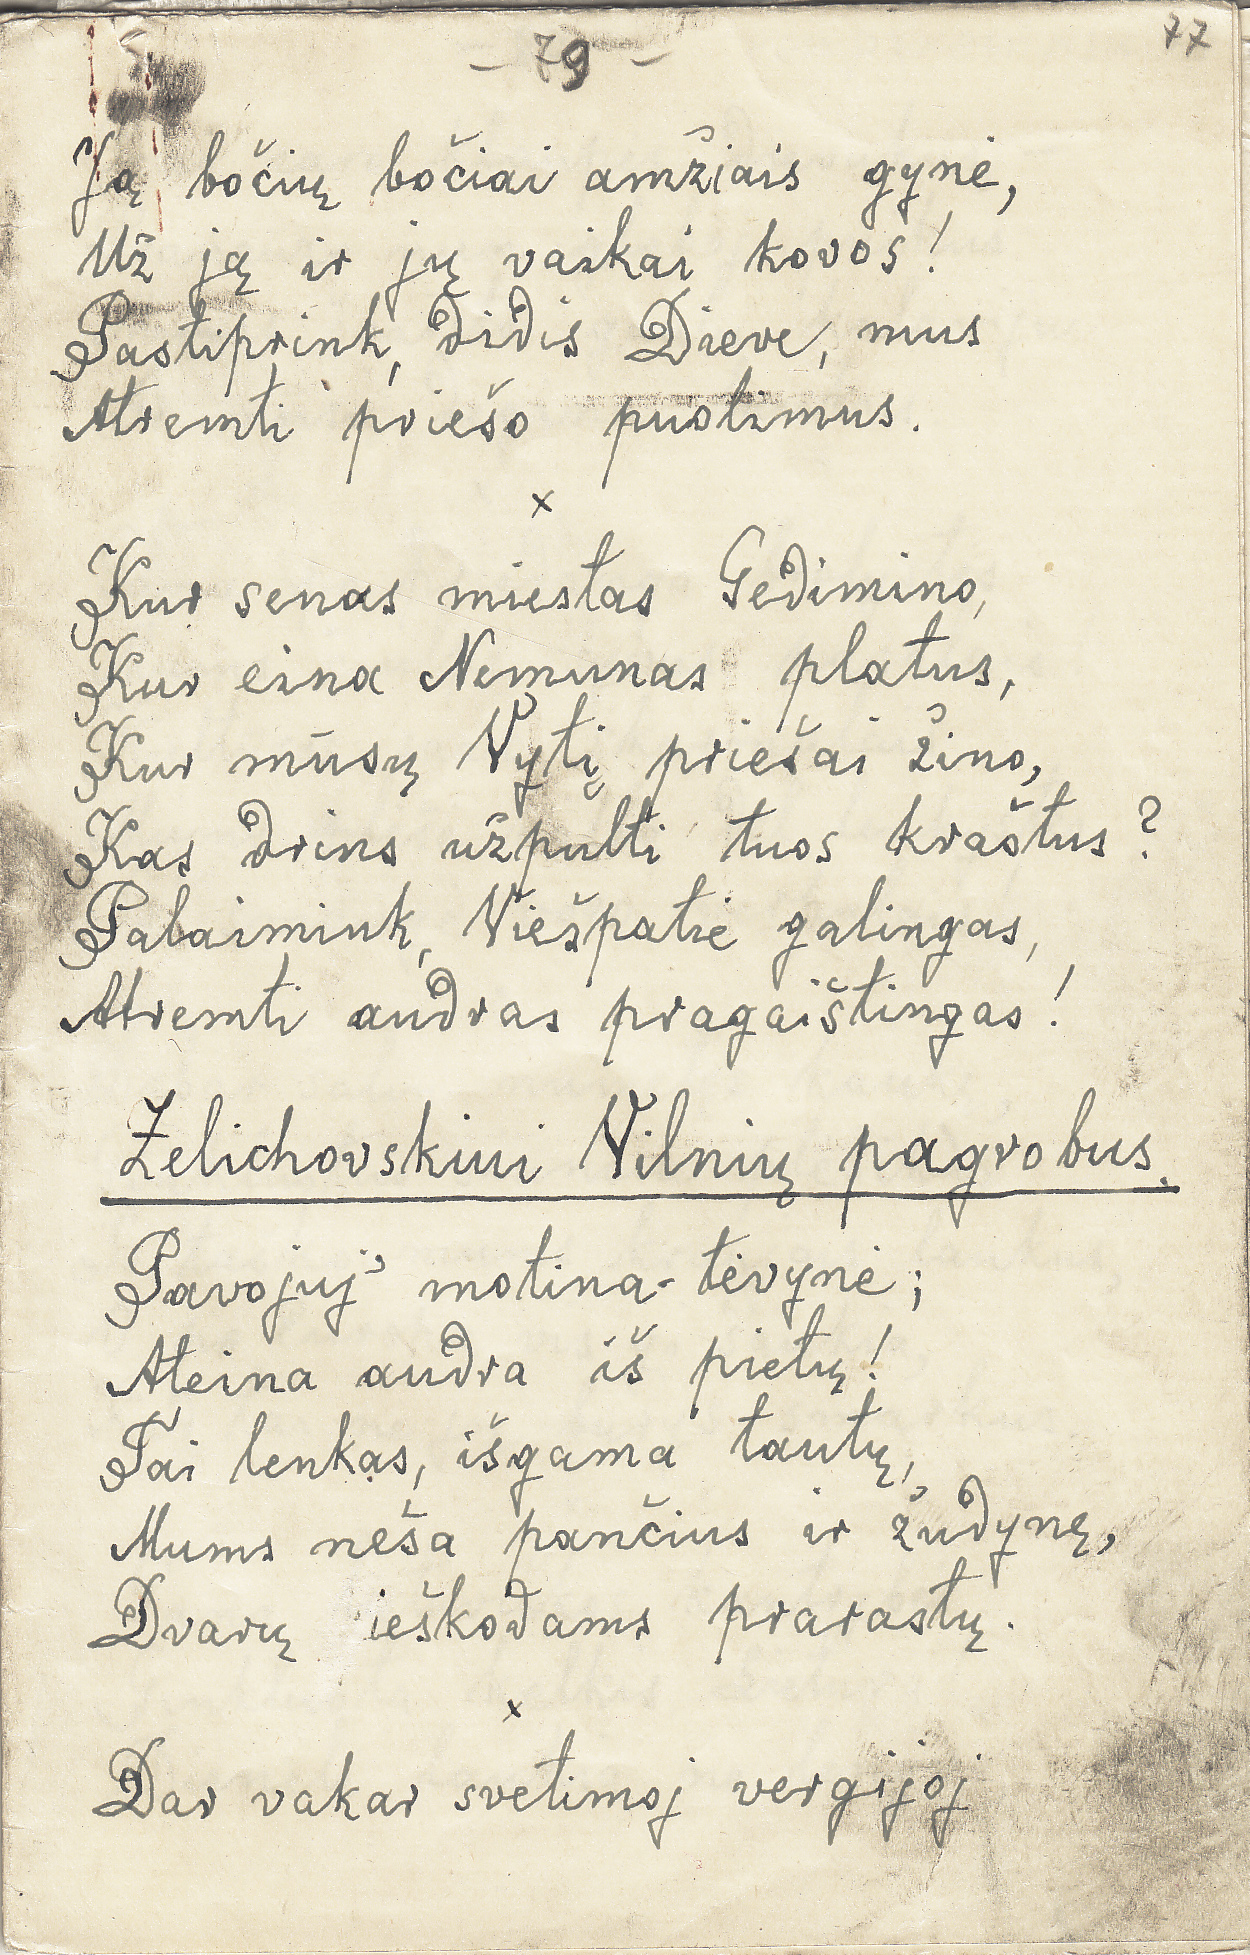 - 79 -
77
Ją bočių bočiai amžiais gynė,
Už ją ir jų vaikai kovos!
Pastiprink, didis Dieve, mus
Atremti priešo puolimus.
x
Kur senas miestas Gedimino,
Kur eina Nemunas platus,
Kur mūsų Vytį priešai žino,
Kas drins užpulti tuos kraštus?
Palaimink, Viešpatie galingas,
Atremti audras pragaištingas!
Želichovskiui Vilnių pagrobus.
Pavojuj' motina-tėvynė;
Ateina audra iš pietų!
Tai lenkas, išgama tautų,
Mums neša pančius ir žudynę,
Dvarų ieškodams prarastų.
x
Dar vakar svetimoj vergijoj